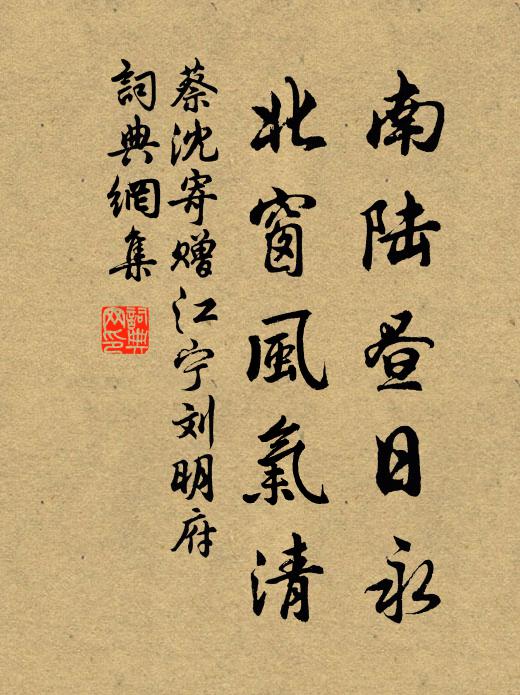 南陆昼日永
北窗風氣清
蔡沈寄赠江宁刘明府
詞典網集
詞典网印